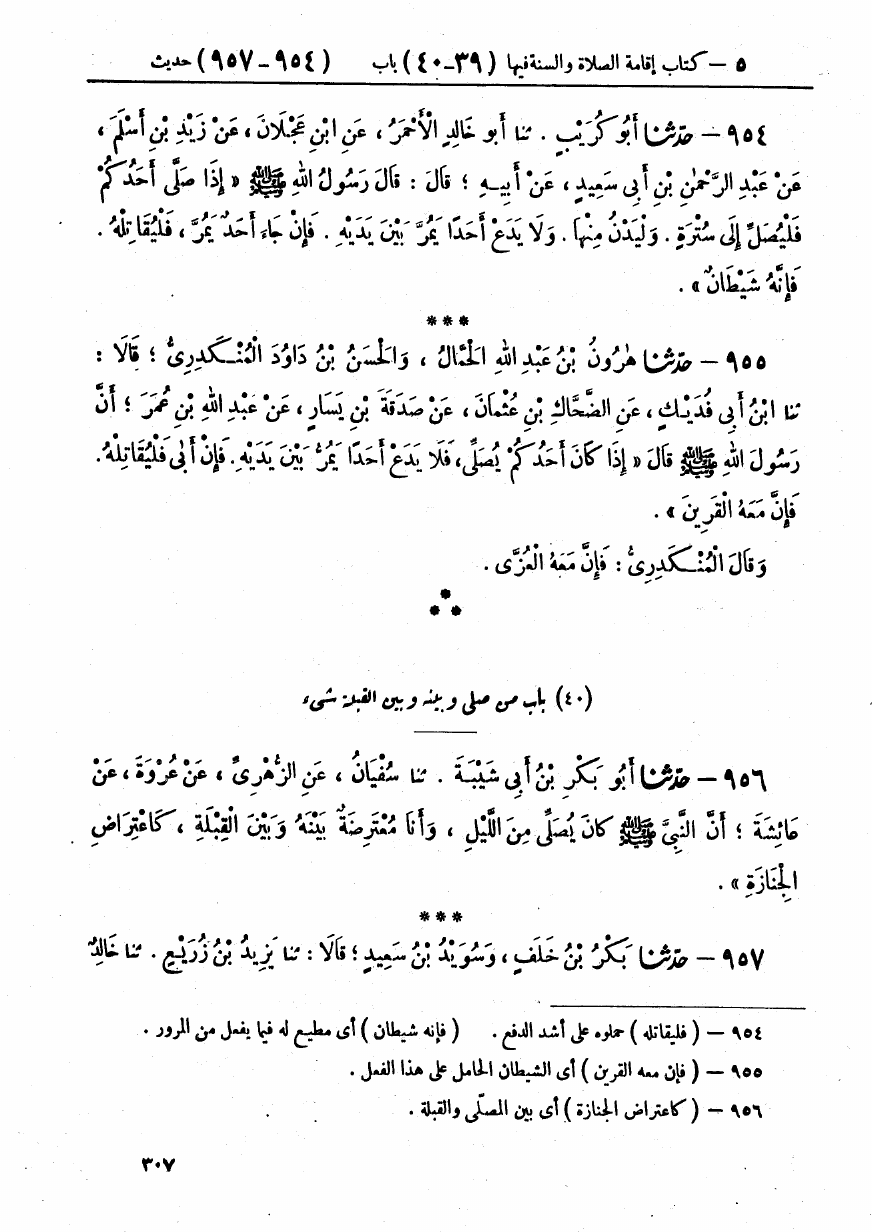 ٥ – كتاب إقامة الصلاة والسنة فيها (٣٩-٤٠) باب (٩٥٤-٩٥٧) حديث
٩٥٤ – حَدَّثَنَا أَبُو كُرَيْبٍ . ثنا أَبُو خَالِدٍ الْأَحْمَرُ ، عَنِ ابْنِ عَجْلَانَ ، عَنْ زَيْدِ بْنِ أَسْلَمَ ،
عَنْ عَبْدِ الرَّحْمٰنِ بْنِ أَبِي سَعِيدٍ ، عَنْ أَبِيهِ ؛ قَالَ : قَالَ رَسُولُ اللهِ ﷺ « إِذَا صَلَّى أَحَدُكُمْ
فَلْيُصَلِّ إِلَى سُتْرَةٍ . وَلْيَدْنُ مِنْهَا . وَلَا يَدَعْ أَحَدًا يَمُرُّ بَيْنَ يَدَيْهِ . فَإِنْ جَاءَ أَحَدٌ يَمُرُّ ، فَلْيُقَاتِلْهُ .
فَإِنَّهُ شَيْطَانٌ » .
***
٩٥٥ – حَدَّثَنَا هٰرُونُ بْنُ عَبْدِ اللهِ الْحَمَّالُ ، وَالْحَسَنُ بْنُ دَاوُدَ الْمُنْكَدِرِيُّ ؛ قَالَا :
ثنا ابْنُ أَبِي فُدَيْكٍ ، عَنِ الضَّحَّاكِ بْنِ عُثْمَانَ ، عَنْ صَدَقَةَ بْنِ يَسَارٍ ، عَنْ عَبْدِ اللهِ بْنِ عُمَرَ ؛ أَنَّ
رَسُولَ اللهِ ﷺ قَالَ « إِذَا كَانَ أَحَدُكُمْ يُصَلِّي ، فَلَا يَدَعْ أَحَدًا يَمُرُّ بَيْنَ يَدَيْهِ . فَإِنْ أَبَى فَلْيُقَاتِلْهُ .
فَإِنَّ مَعَهُ الْقَرِينَ » .
وَقَالَ الْمُنْكَدِرِيُّ : فَإِنَّ مَعَهُ الْعُزَّى .
***
(٤٠) باب من صلى وبينه وبين القبلة شيء
٩٥٦ – حَدَّثَنَا أَبُو بَكْرِ بْنُ أَبِي شَيْبَةَ . ثنا سُفْيَانُ ، عَنِ الزُّهْرِيِّ ، عَنْ عُرْوَةَ ، عَنْ
عَائِشَةَ ؛ أَنَّ النَّبِيَّ ﷺ كَانَ يُصَلِّي مِنَ اللَّيْلِ ، وَأَنَا مُعْتَرِضَةٌ بَيْنَهُ وَبَيْنَ الْقِبْلَةِ ، كَاعْتِرَاضِ
الْجِنَازَةِ » .
***
٩٥٧ – حَدَّثَنَا بَكْرُ بْنُ خَلَفٍ ، وَسُوَيْدُ بْنُ سَعِيدٍ ؛ قَالَا : ثنا يَزِيدُ بْنُ زُرَيْعٍ . ثنا خَالِدٌ
٩٥٤ – ( فليقاتله ) حملوه على أشد الدفع . ( فإنه شيطان ) أى مطيع له فيما يفعل من المرور .
٩٥٥ – ( فإن معه القرين ) أى الشيطان الحامل على هذا الفعل .
٩٥٦ – ( كاعتراض الجنازة ) أى بين المصلّى والقبلة .
٣٠٧